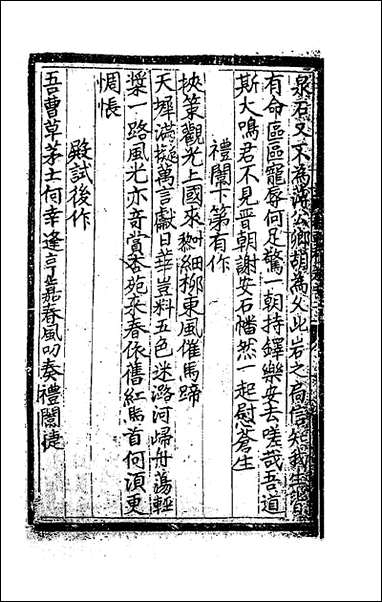 泉石又不為諸公卿胡為久此岩之扃信知我生皆
有命區區寵辱何足驚一朝持鐸樂安去嗟哉吾道
斯大鳴君不見晋朝謝安石幡然一起慰蒼生
禮闈下第有作
挾策觀光上國來 細柳東風催馬蹄
天墀滿擬萬言獻日華豈料五色迷潞河歸舟蕩輕
槳一路風光亦奇賞杏苑來春依舊紅馬首何須更
惆悵
殿試後作
吾曹草茅士何幸逢亨嘉春風叨奏禮闈捷